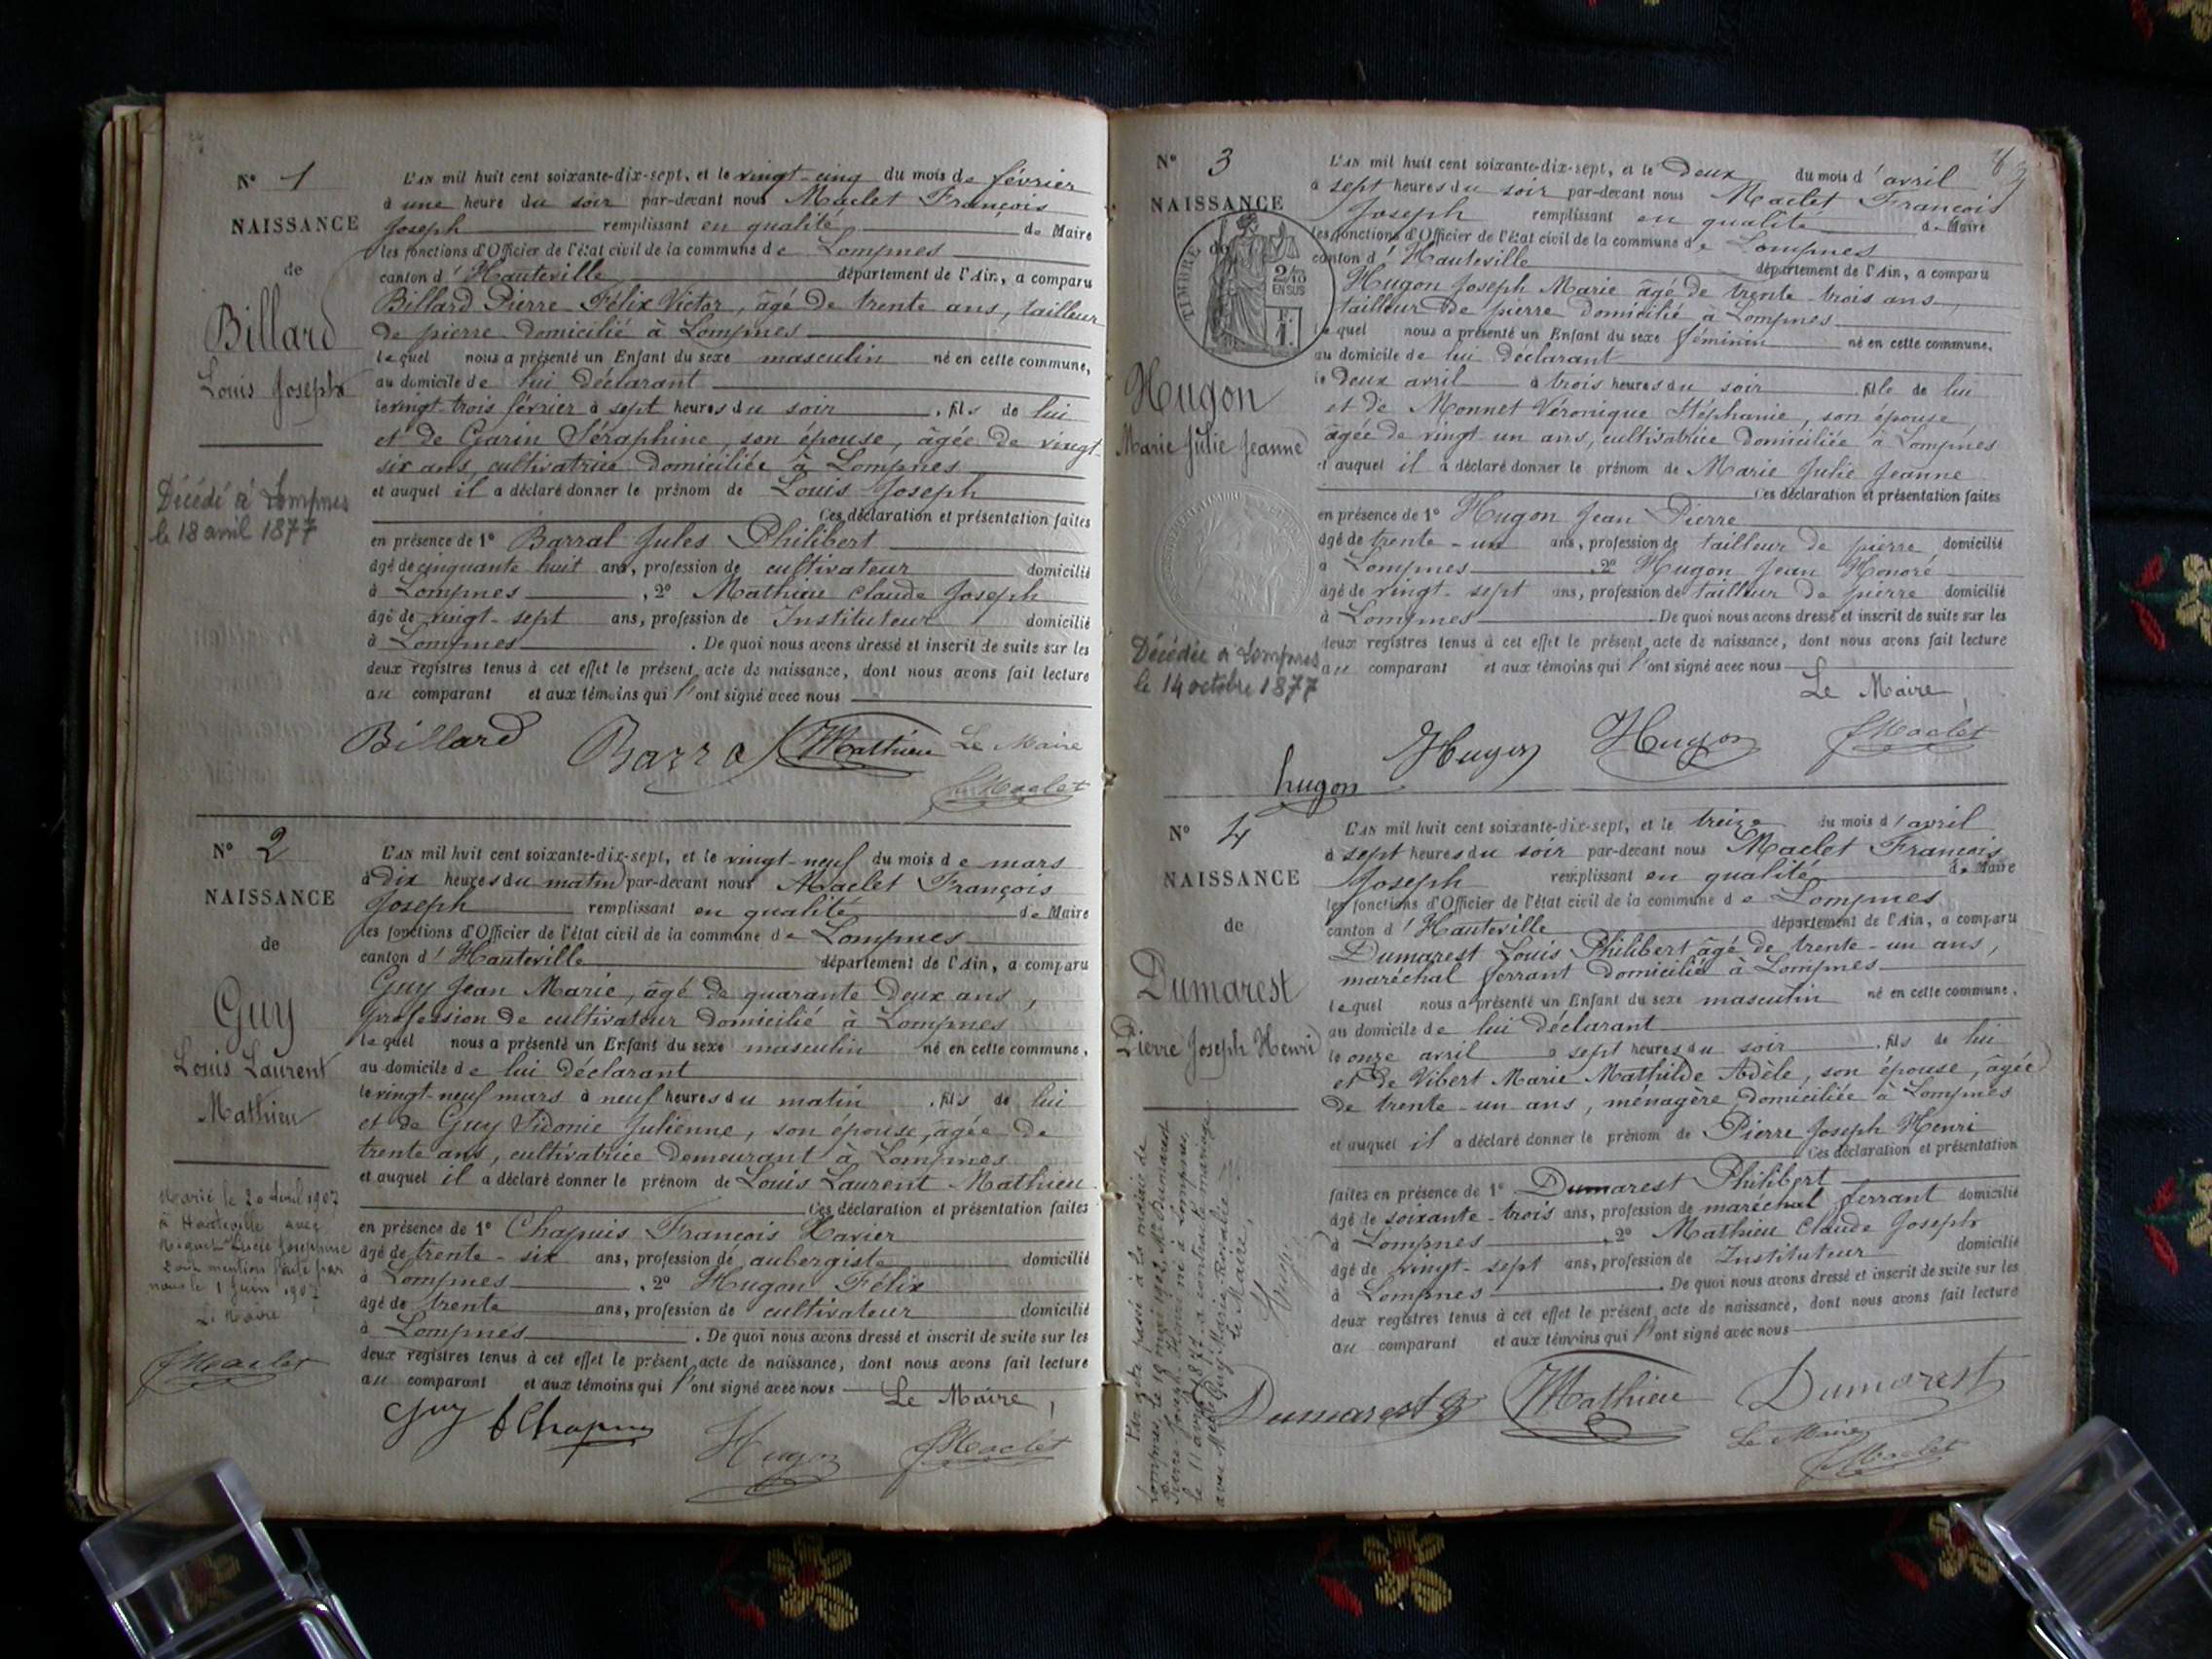 N° 1
NAISSANCE
de
Billard
Louis Joseph
Décédé à Lompnes
le 18 avril 1877
L'AN mil huit cent soixante-dix-sept, et le vingt-cinq du mois de février
à une heure du soir par-devant nous Maclet François
Joseph remplissant en qualité de Maire
les fonctions d'Officier de l'état civil de la commune de Lompnes
canton d'Hauteville département de l'Ain, a comparu
Billard Pierre Félix Victor, âgé de trente ans, tailleur
de pierre domicilié à Lompnes
lequel nous a présenté un Enfant du sexe masculin né en cette commune,
au domicile de lui déclarant
le vingt-trois février à sept heures du soir, fils de lui
et de Garin Séraphine, son épouse, âgée de vingt-
six ans, cultivatrice domiciliée à Lompnes
et auquel il a déclaré donner le prénom de Louis Joseph
Ces déclaration et présentation faites
en présence de 1° Barral Jules Philibert
âgé de cinquante huit ans, profession de cultivateur domicilié
à Lompnes, 2° Mathieu Claude Joseph
âgé de vingt-sept ans, profession de Instituteur domicilié
à Lompnes. De quoi nous avons dressé et inscrit de suite sur les
deux registres tenus à cet effet le présent acte de naissance, dont nous avons fait lecture
au comparant et aux témoins qui l'ont signé avec nous
Billard Barral Mathieu Le Maire
Maclet
N° 2
NAISSANCE
de
Guy
Louis Laurent
Mathieu
Marié le 20 Avril 1907
à Hauteville avec
Lucie Josephine
mention faite par
nous le 1 Juin 1907
Le Maire
Maclet
L'AN mil huit cent soixante-dix-sept, et le vingt-neuf du mois de mars
à dix heures du matin par-devant nous Maclet François
Joseph remplissant en qualité de Maire
les fonctions d'Officier de l'état civil de la commune de Lompnes
canton d'Hauteville département de l'Ain, a comparu
Guy Jean Marie, âgé de quarante deux ans,
profession de cultivateur domicilié à Lompnes
lequel nous a présenté un Enfant du sexe masculin né en cette commune,
au domicile de lui déclarant
le vingt-neuf mars à neuf heures du matin, fils de lui
et de Guy Sidonie Julienne, son épouse, âgée de
trente ans, cultivatrice demeurant à Lompnes
et auquel il a déclaré donner le prénom de Louis Laurent Mathieu
Ces déclaration et présentation faites
en présence de 1° Chapuis François Xavier
âgé de trente-six ans, profession de aubergiste domicilié
à Lompnes, 2° Hugon Félix
âgé de trente ans, profession de cultivateur domicilié
à Lompnes. De quoi nous avons dressé et inscrit de suite sur les
deux registres tenus à cet effet le présent acte de naissance, dont nous avons fait lecture
au comparant et aux témoins qui l'ont signé avec nous Le Maire,
Guy Chapuis Hugon Maclet
N° 3
NAISSANCE
de
TIMBRE
2/10
EN SUS
1 F.
Hugon
Marie Julie Jeanne
Décédée à Lompnes
le 14 octobre 1877
L'AN mil huit cent soixante-dix-sept, et le deux du mois d'avril
à sept heures du soir par-devant nous Maclet François
Joseph remplissant en qualité de Maire
les fonctions d'Officier de l'état civil de la commune de Lompnes
canton d'Hauteville département de l'Ain, a comparu
Hugon Joseph Marie âgé de trente-trois ans,
tailleur de pierre domicilié à Lompnes
lequel nous a présenté un Enfant du sexe féminin né en cette commune,
au domicile de lui déclarant
le deux avril à trois heures du soir, fille de lui
et de Monnet Véronique Stéphanie, son épouse,
âgée de vingt-un ans, cultivatrice domiciliée à Lompnes
et auquel il a déclaré donner le prénom de Marie Julie Jeanne
Ces déclaration et présentation faites
en présence de 1° Hugon Jean Pierre
âgé de trente-un ans, profession de tailleur de pierre domicilié
à Lompnes, 2° Hugon Jean Honoré
âgé de vingt-sept ans, profession de tailleur de pierre domicilié
à Lompnes. De quoi nous avons dressé et inscrit de suite sur les
deux registres tenus à cet effet le présent acte de naissance, dont nous avons fait lecture
au comparant et aux témoins qui l'ont signé avec nous
Le Maire,
hugon Hugon Hugon Maclet
N° 4
NAISSANCE
de
Dumarest
Pierre Joseph Henri
Par acte passé à la mairie de
Lompnes, le 18 mai 1902, Mr Dumarest
Pierre Joseph Henri né à Lompnes,
le 11 avril 1877 a contracté mariage
avec Melle Guy Marie Rosalie
Le Maire,
L'AN mil huit cent soixante-dix-sept, et le treize du mois d'avril
à sept heures du soir par-devant nous Maclet François
Joseph remplissant en qualité de Maire
les fonctions d'Officier de l'état civil de la commune de Lompnes
canton d'Hauteville département de l'Ain, a comparu
Dumarest Louis Philibert âgé de trente-un ans,
maréchal ferrant domicilié à Lompnes
lequel nous a présenté un Enfant du sexe masculin né en cette commune,
au domicile de lui déclarant
le onze avril à sept heures du soir, fils de lui
et de Vibert Marie Mathilde Adèle, son épouse, âgée
de trente-un ans, ménagère domiciliée à Lompnes
et auquel il a déclaré donner le prénom de Pierre Joseph Henri
Ces déclaration et présentation
faites en présence de 1° Dumarest Philibert
âgé de soixante-trois ans, profession de maréchal ferrant domicilié
à Lompnes, 2° Mathieu Claude Joseph
âgé de vingt-sept ans, profession de Instituteur domicilié
à Lompnes. De quoi nous avons dressé et inscrit de suite sur les
deux registres tenus à cet effet le présent acte de naissance, dont nous avons fait lecture
au comparant et aux témoins qui l'ont signé avec nous
Dumarest Mathieu Dumarest
Le Maire
Maclet